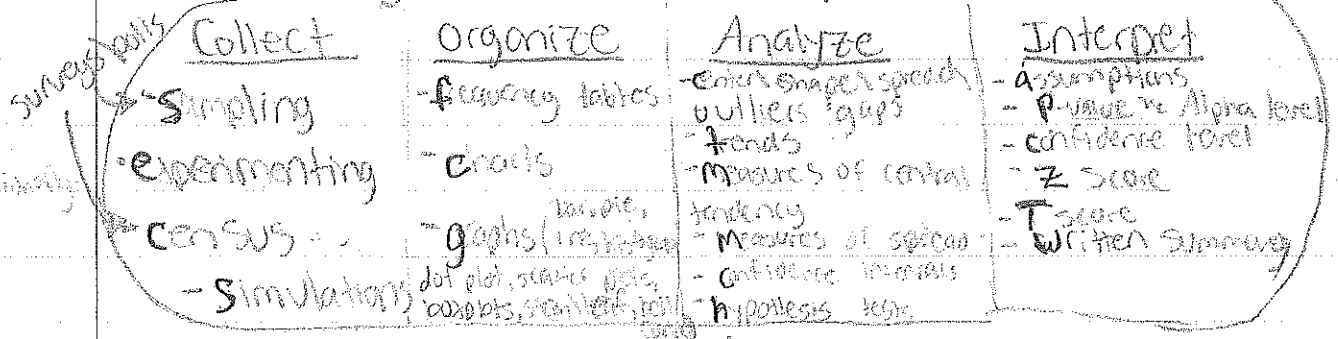 surveys/polls
Collect
- Sampling
- experimenting
- Census
- Simulations
Organize
- frequency tables
- charts
- graphs (bar, pie,
dot plot, scatter plots,
boxplots, stem/leaf, bell
curve)
Analyze
- center/shape/spread
outliers gaps
- trends
- Measures of central
tendency
- Measures of spread
- confidence intervals
- hypothesis tests
Interpret
- assumptions
- P-value vs Alpha level
- confidence level
- Z score
- T score
- written summary